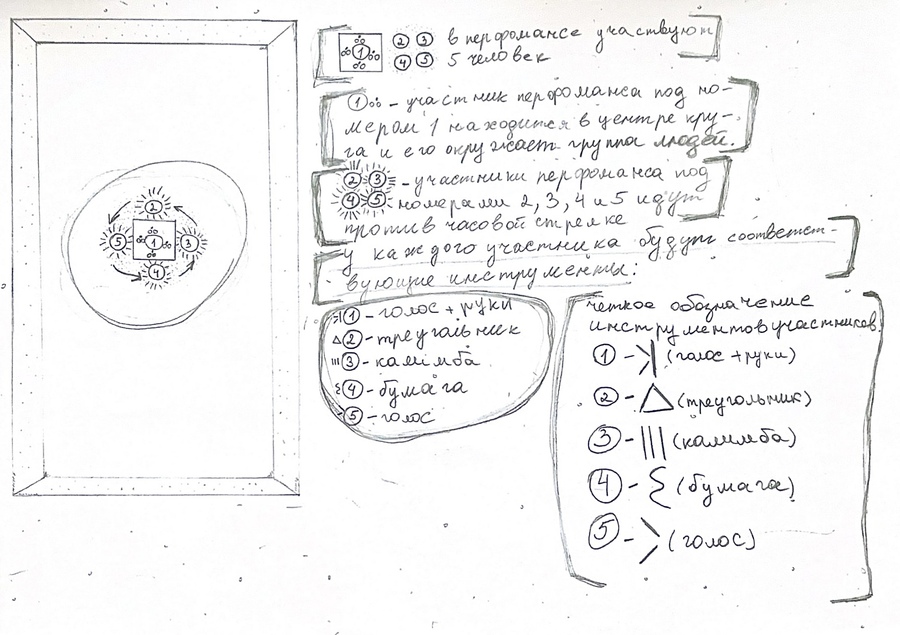 2
5 1 3
4
1 2 3 в перфомансе участвуют
4 5 5 человек
1 - участник перфоманса под но-
мером 1 находится в центре кру-
га и его окружает группа людей.
2 3 - участники перфоманса под
4 5 номерами 2, 3, 4 и 5 идут
против часовой стрелке
у каждого участника будут соответст-
вующие инструменты:
1 - голос + руки
2 - треугольник
3 - калимба
4 - бумага
5 - голос
чёткое обозначение
инструментов участников
1 - (голос + руки)
2 - (треугольник)
3 - (калимба)
4 - (бумага)
5 - (голос)